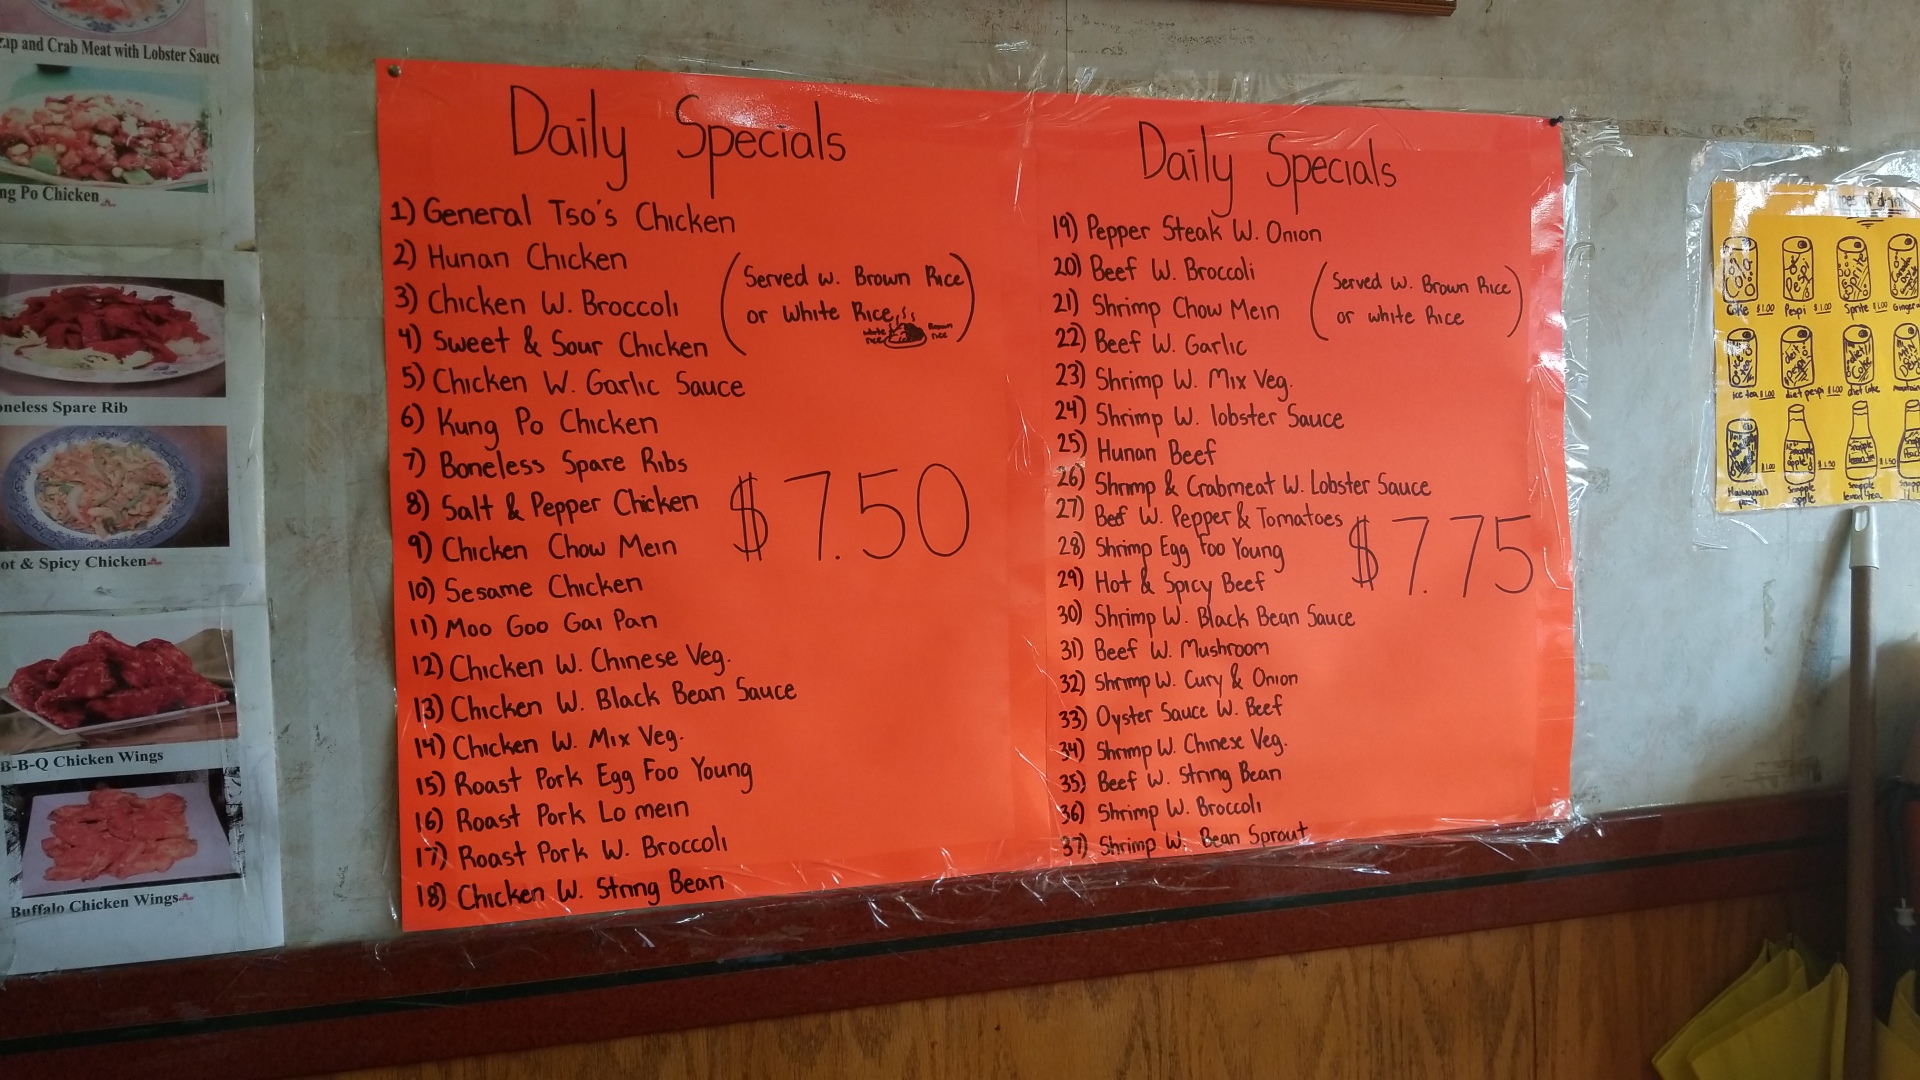 and Crab Meat with Lobster Sauce
Po Chicken
Spare Rib
& Spicy Chicken
B-B-Q Chicken Wings
Buffalo Chicken Wings
Daily Specials
1) General Tso's Chicken
2) Hunan Chicken
3) Chicken W. Broccoli
4) Sweet & Sour Chicken
5) Chicken W. Garlic Sauce
6) Kung Po Chicken
7) Boneless Spare Ribs
8) Salt & Pepper Chicken
9) Chicken Chow Mein
10) Sesame Chicken
11) Moo Goo Gai Pan
12) Chicken W. Chinese Veg.
13) Chicken W. Black Bean Sauce
14) Chicken W. Mix Veg.
15) Roast Pork Egg Foo Young
16) Roast Pork Lo mein
17) Roast Pork W. Broccoli
18) Chicken W. String Bean
(Served w. Brown Rice
or White Rice)
white rice
Brown rice
$7.50
Daily Specials
19) Pepper Steak W. Onion
20) Beef W. Broccoli
21) Shrimp Chow Mein
22) Beef W. Garlic
23) Shrimp W. Mix Veg.
24) Shrimp W. lobster Sauce
25) Hunan Beef
26) Shrimp & Crabmeat W. Lobster Sauce
27) Beef W. Pepper & Tomatoes
28) Shrimp Egg Foo Young
29) Hot & Spicy Beef
30) Shrimp W. Black Bean Sauce
31) Beef W. Mushroom
32) Shrimp W. Cury & Onion
33) Oyster Sauce W. Beef
34) Shrimp W. Chinese Veg.
35) Beef W. String Bean
36) Shrimp W. Broccoli
37) Shrimp W. Bean Sprout
(Served w. Brown Rice
or white Rice)
$7.75
Coke $1.00 Pespi $1.00 Sprite $1.00 Ginger
ice tea $1.00 diet pespi $1.00 diet Coke
$1.00 $1.50 $1.50
Snapple apple